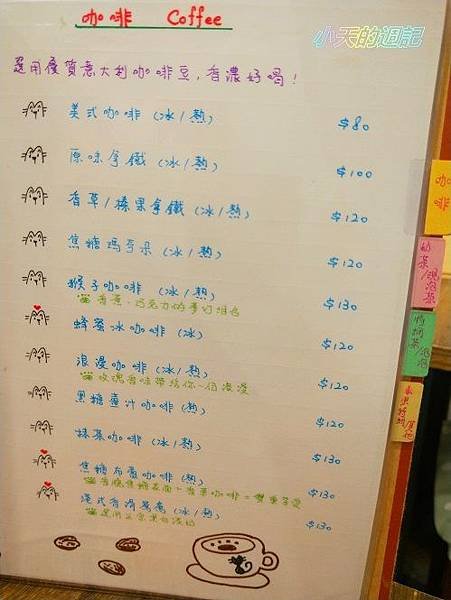 咖啡 Coffee
小天的週記
選用優質意大利咖啡豆，香濃好喝！
美式咖啡（冰/熱） $80
原味拿鐵（冰/熱） $100
香草/榛果拿鐵（冰/熱） $120
焦糖瑪奇朵（冰/熱） $120
猴子咖啡（冰/熱） $130
香蕉、巧克力的夢幻組合
蜂蜜冰咖啡（冰） $120
浪漫咖啡（冰/熱） $120
玫瑰香味帶給你一佰浪漫
黑糖薑汁咖啡（熱） $120
榛茶咖啡（冰/熱） $130
焦糖布蕾咖啡（熱） $130
港式香滑鴛鴦（冰/熱） $130
咖啡